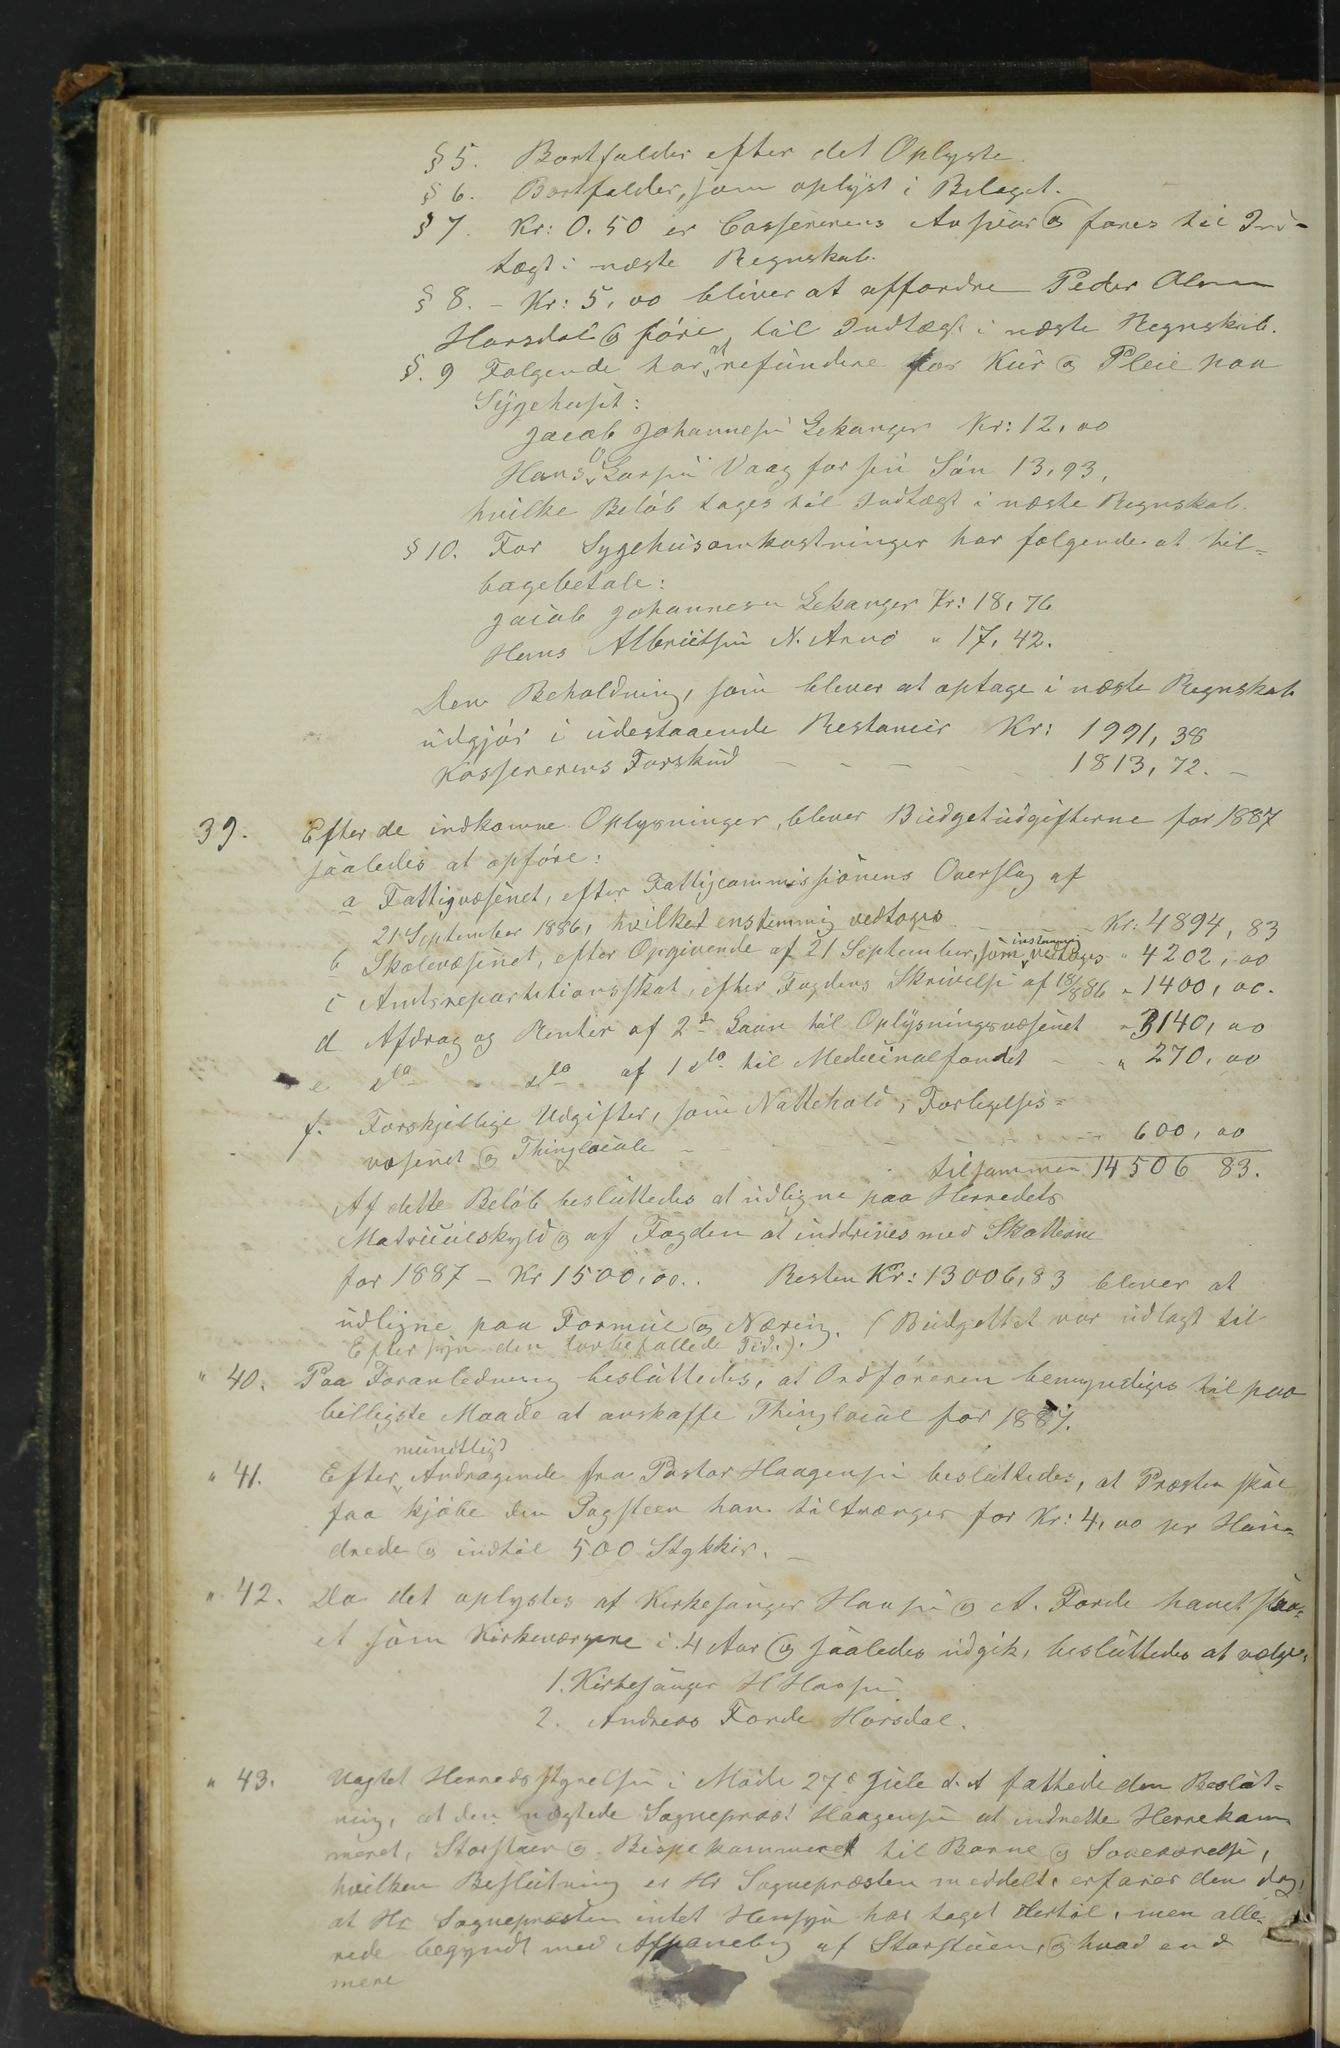 § 5. Bortfalder efter det Oplyste.
§ 6. Bortfalder, som oplyst i Bilaget.
§ 7. Kr: 0.50 er Cassererens Ansvar og føres til Ind-
tægt i næste Regnskab.
§ 8. - Kr: 5,00 bliver at affordre Peder Olsen
Horsdal og føre til Indtægt i næste Regnskab.
§. 9 Følgende har at refundere for Kur og Pleie paa
Sygehuset:
Jacob Johannesen Lekanger Kr: 12,00
Hans Larsen Vaag for sin Søn 13,93,
hvilke Beløb tages til Indtægt i næste Regnskab.
§ 10. For Sygehusomkostninger har følgende at til-
bagebetale:
Jacob Johannesen Lekanger Kr: 18,76
Hans Albrigtsen N. Arnø " 17,42.
Den Beholdning, som bliver at optage i næste Regnskab
udgjør i udestaaende Restancer Kr: 1991,38
Kassererens Forskud - - - - - 1813,72. -
39. Efter de indkomne Oplysninger, bliver Budgetudgifterne for 1887
saaledes at opføre:
a Fattigvæsenet, efter Fattigcommissionens Overslag af
21 September 1886, hvilket enstemmig vedtoges - - - Kr: 4894,83
b Skolevæsenet, efter Opgivende af 21 September, som enstemmig vedtoges " 4202,00
c Amtsrepartitionsskat, efter Fogdens Skrivelse af 18/8 86 " 1400,00.
d Afdrag og Renter af 2de Laan til Oplysningsvæsenet " 3140,00
e do " do af 1 do til Medicinalfondet - - " 270,00
f. Forskjellige Udgifter, som Nattehold, Forligelses-
væsenet og Thinglocale - - - - - 600,00
tilsammen 14506 83.
Af dette Beløb besluttedes at udligne paa Herredets
Matriculskyld og af Fogden at inddrives med Skatterne
for 1887 - Kr 1500,00.. Resten Kr: 13006,83 bliver at
udligne paa Formue og Næring. (Budgettet var udlagt til
Eftersyn den lovbefallede Tid.).
" 40. Paa Foranledning besluttedes, at Ordføreren bemyndiges til paa
billigste Maade at anskaffe Thinglocal for 1887.
" 41. Efter mundtligt Andragende fra Pastor Haagensen besluttedes, at Præsten skal
faa kjøbe den Tagsteen han tiltrænger for Kr: 4,00 pr Hun-
drede og indtil 500 Stykker. -
" 42. Da det oplystes af Kirkesanger Hansen og A. Forde havet staa-
et som Kirkeværgere i 4 Aar og saaledes udgik, besluttedes at vælge,
1. Kirkesanger H Hansen
2. Andreas Forde Horsdal.
" 43. Uagtet Herredsstyrelsen i Møde 27de Jule d. A fattede den Beslut-
ning, at den nægtede Sognepræst Haagensen at indrette Herrekam
meret, Storstuen og Bispekammeret til Barne og Soveværelse,
hvilken Beslutning er Hr Sognepræsten meddelt, erfares den dog,
at Hr Sognepræsten intet Hensyn har taget dertil, men alle-
rede begyndt med Afpaneling af Storstuen, og hvad end
mere